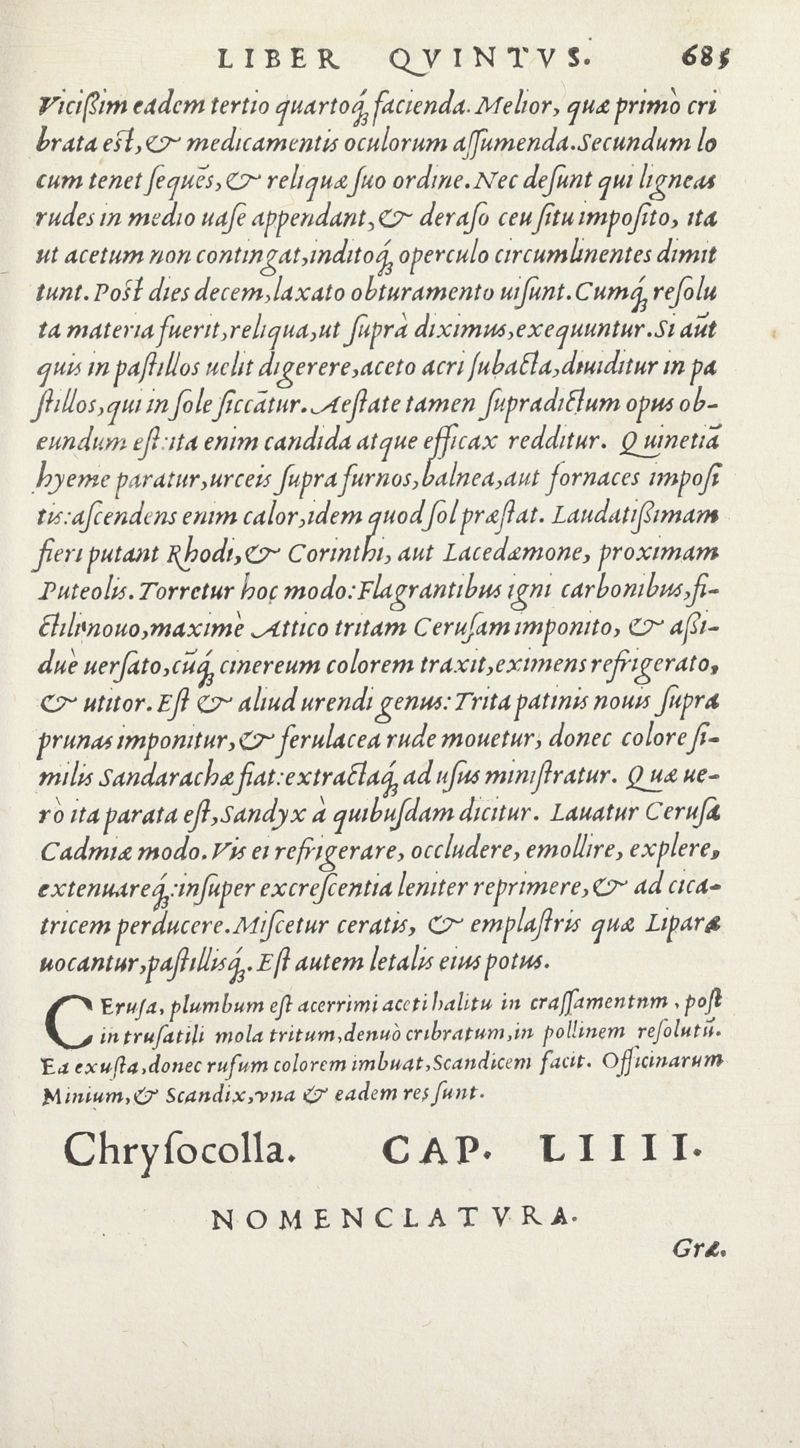 LIBER QVINTVS. 685
Viciſsim eadem tertio quartoq́ꝫ facienda. Melior, quæ primò cri
brata est, & medicamentis oculorum aſſumenda. Secundum lo
cum tenet ſequẽs, & reliquæ ſuo ordine. Nec deſunt qui ligneas
rudes in medio uaſe appendant, & deraſo ceu ſitu impoſito, ita
ut acetum non contingat, inditoq́ꝫ operculo circumlinentes dimit
tunt. Post dies decem, laxato obturamento uiſunt. Cumq́ꝫ reſolu
ta materia fuerit, reliqua, ut ſuprà diximus, exequuntur. Si aũt
quis in paſtillos uelit digerere, aceto acri ſubacta, diuiditur in pa
ſtillos, qui in ſole ſiccãtur. Aeſtate tamen ſupradictum opus ob-
eundum eſt: ita enim candida atque efficax redditur. Quinetiã
hyeme paratur, urceis ſupra furnos, balnea, aut fornaces impoſi
tis: aſcendens enim calor, idem quod ſol præſtat. Laudatiſsimam
fieri putant Rhodi, & Corinthi, aut Lacedæmone, proximam
Puteolis. Torretur hoc modo: Flagrantibus igni carbonibus, fi-
ctili nouo, maximè Attico tritam Ceruſam imponito, & aſsi-
duè uerſato, cũq́ꝫ cinereum colorem traxit, eximens refrigerato,
& utitor. Eſt & aliud urendi genus: Trita patinis nouis ſupra
prunas imponitur, & ferulacea rude mouetur, donec colore ſi-
milis Sandarachæ fiat: extractaq́ꝫ ad uſus miniſtratur. Quæ ue-
rò ita parata eſt, Sandyx à quibuſdam dicitur. Lauatur Ceruſa
Cadmiæ modo. Vis ei refrigerare, occludere, emollire, explere,
extenuareq́ꝫ: inſuper excreſcentia leniter reprimere, & ad cica-
tricem perducere. Miſcetur ceratis, & emplaſtris quæ Liparæ
uocantur, paſtillisq́ꝫ. Eſt autem letalis eius potus.
CEruſa, plumbum eſt acerrimi aceti halitu in craſſamentnm, poſt
in truſatili mola tritum, denuò cribratum, in pollinem reſolutũ.
Ea exuſta, donec rufum colorem imbuat, Scandicem facit. Officinarum
Minium, & Scandix, vna & eadem res ſunt.
Chryſocolla. CAP. LIIII.
NOMENCLATVRA.
Græ.